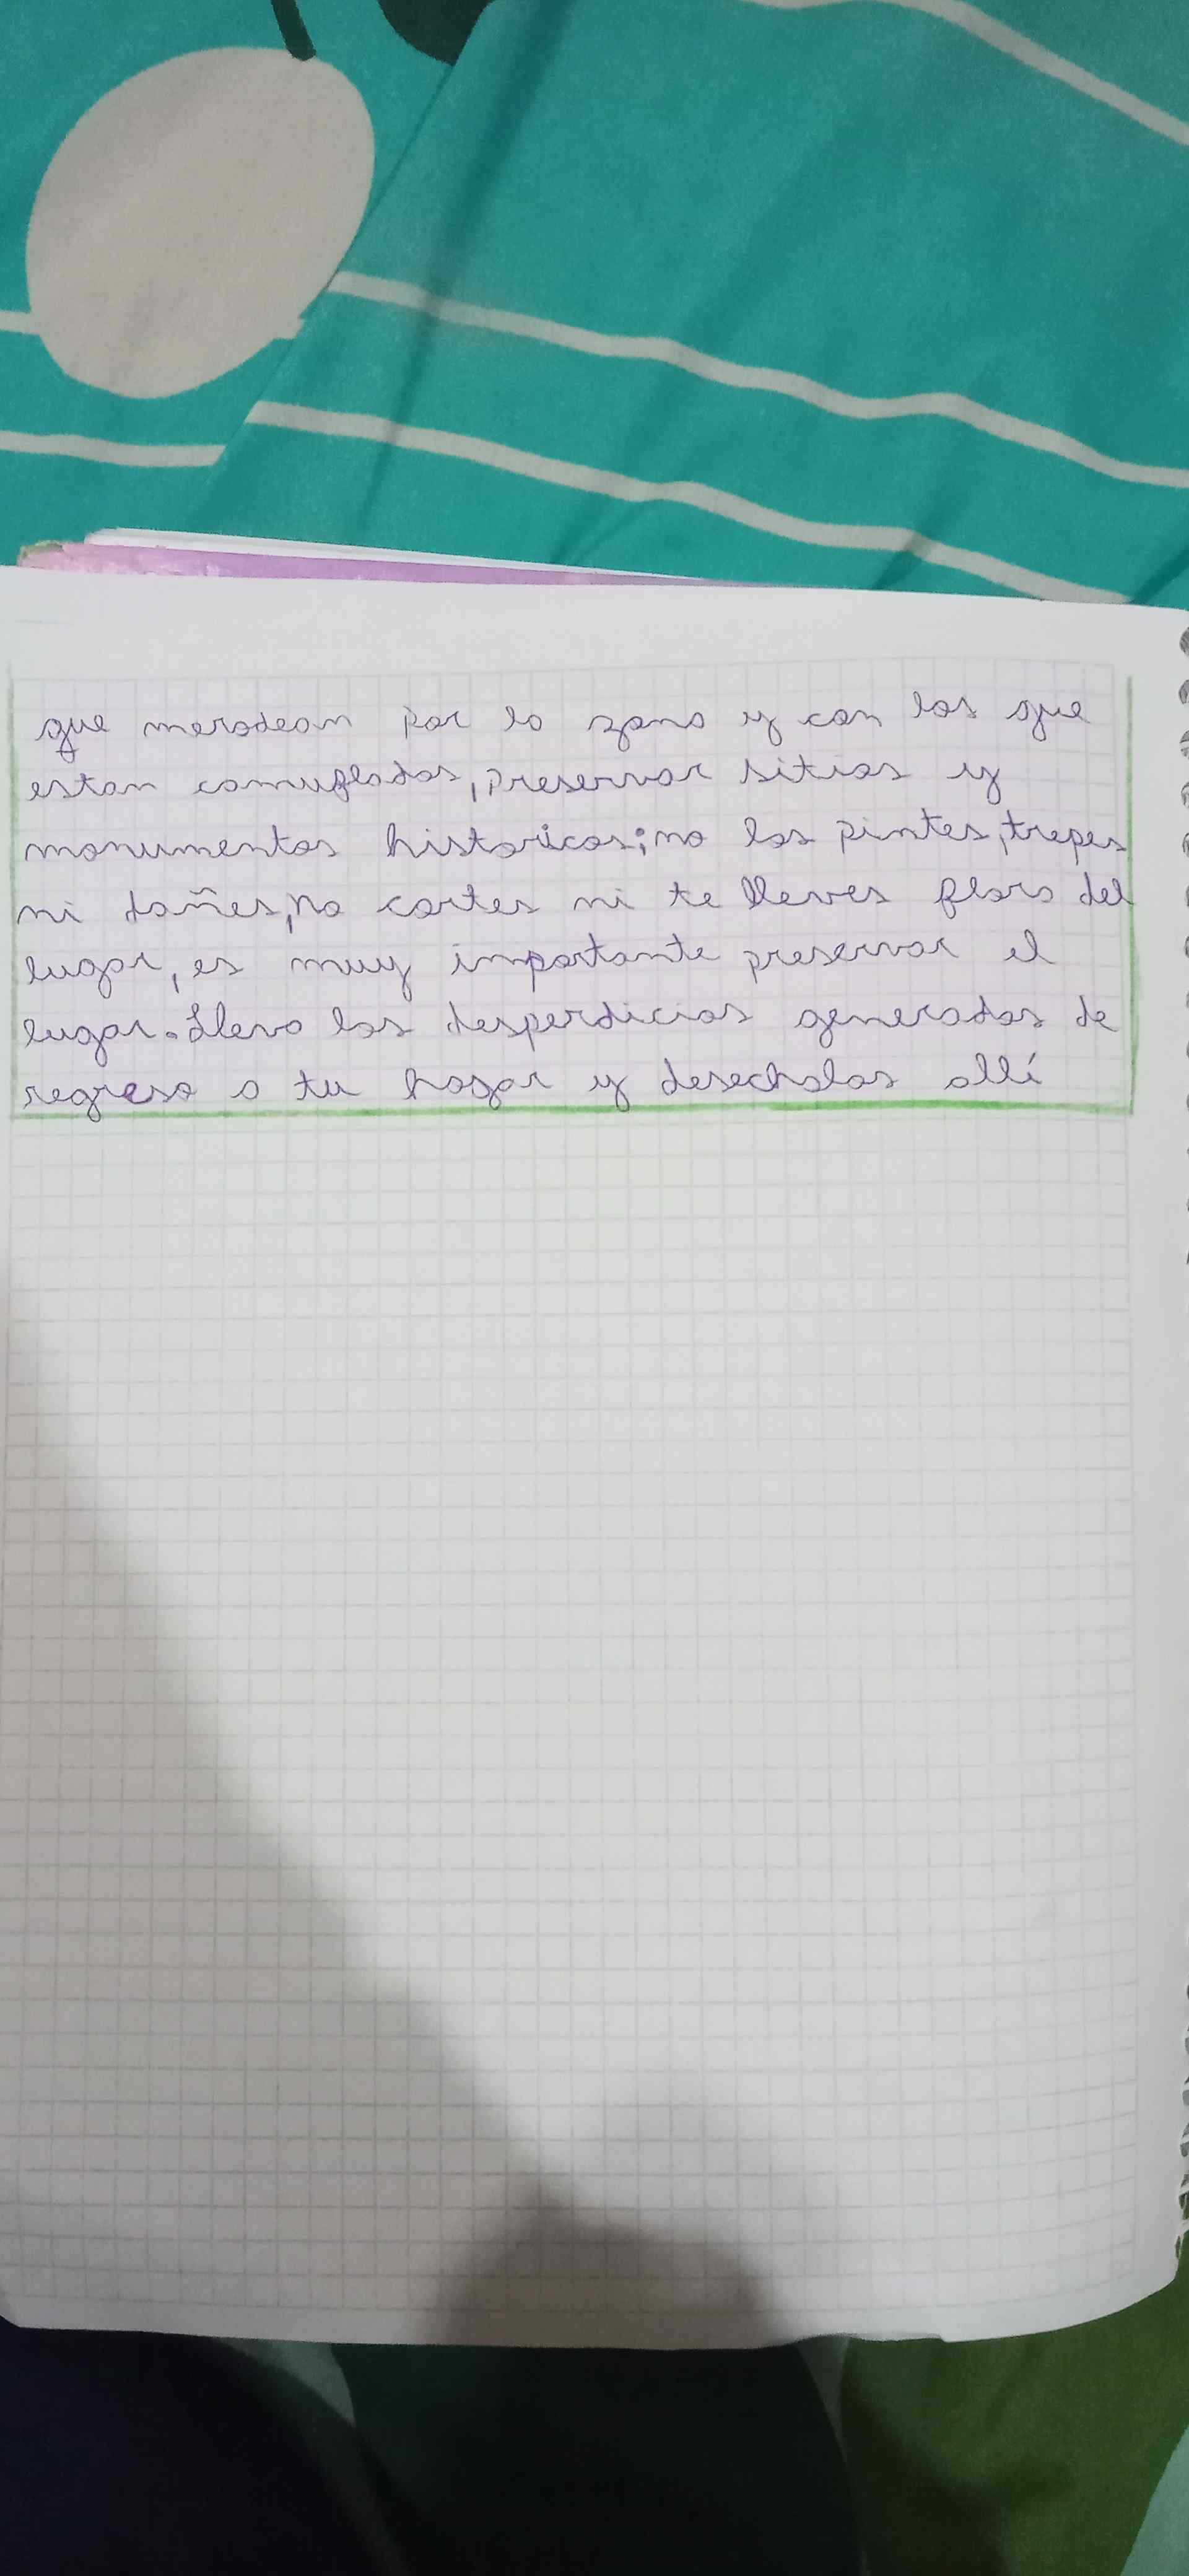 que merodean por la zona y con los que
estan camuflados, preservar sitios y
monumentos historicos; no los pintes, trepes
ni dañes, no cortes ni te lleves flora del
lugar, es muy importante preservar el
lugar. Lleva los desperdicios generados de
regreso a tu hogar y desechalos allí